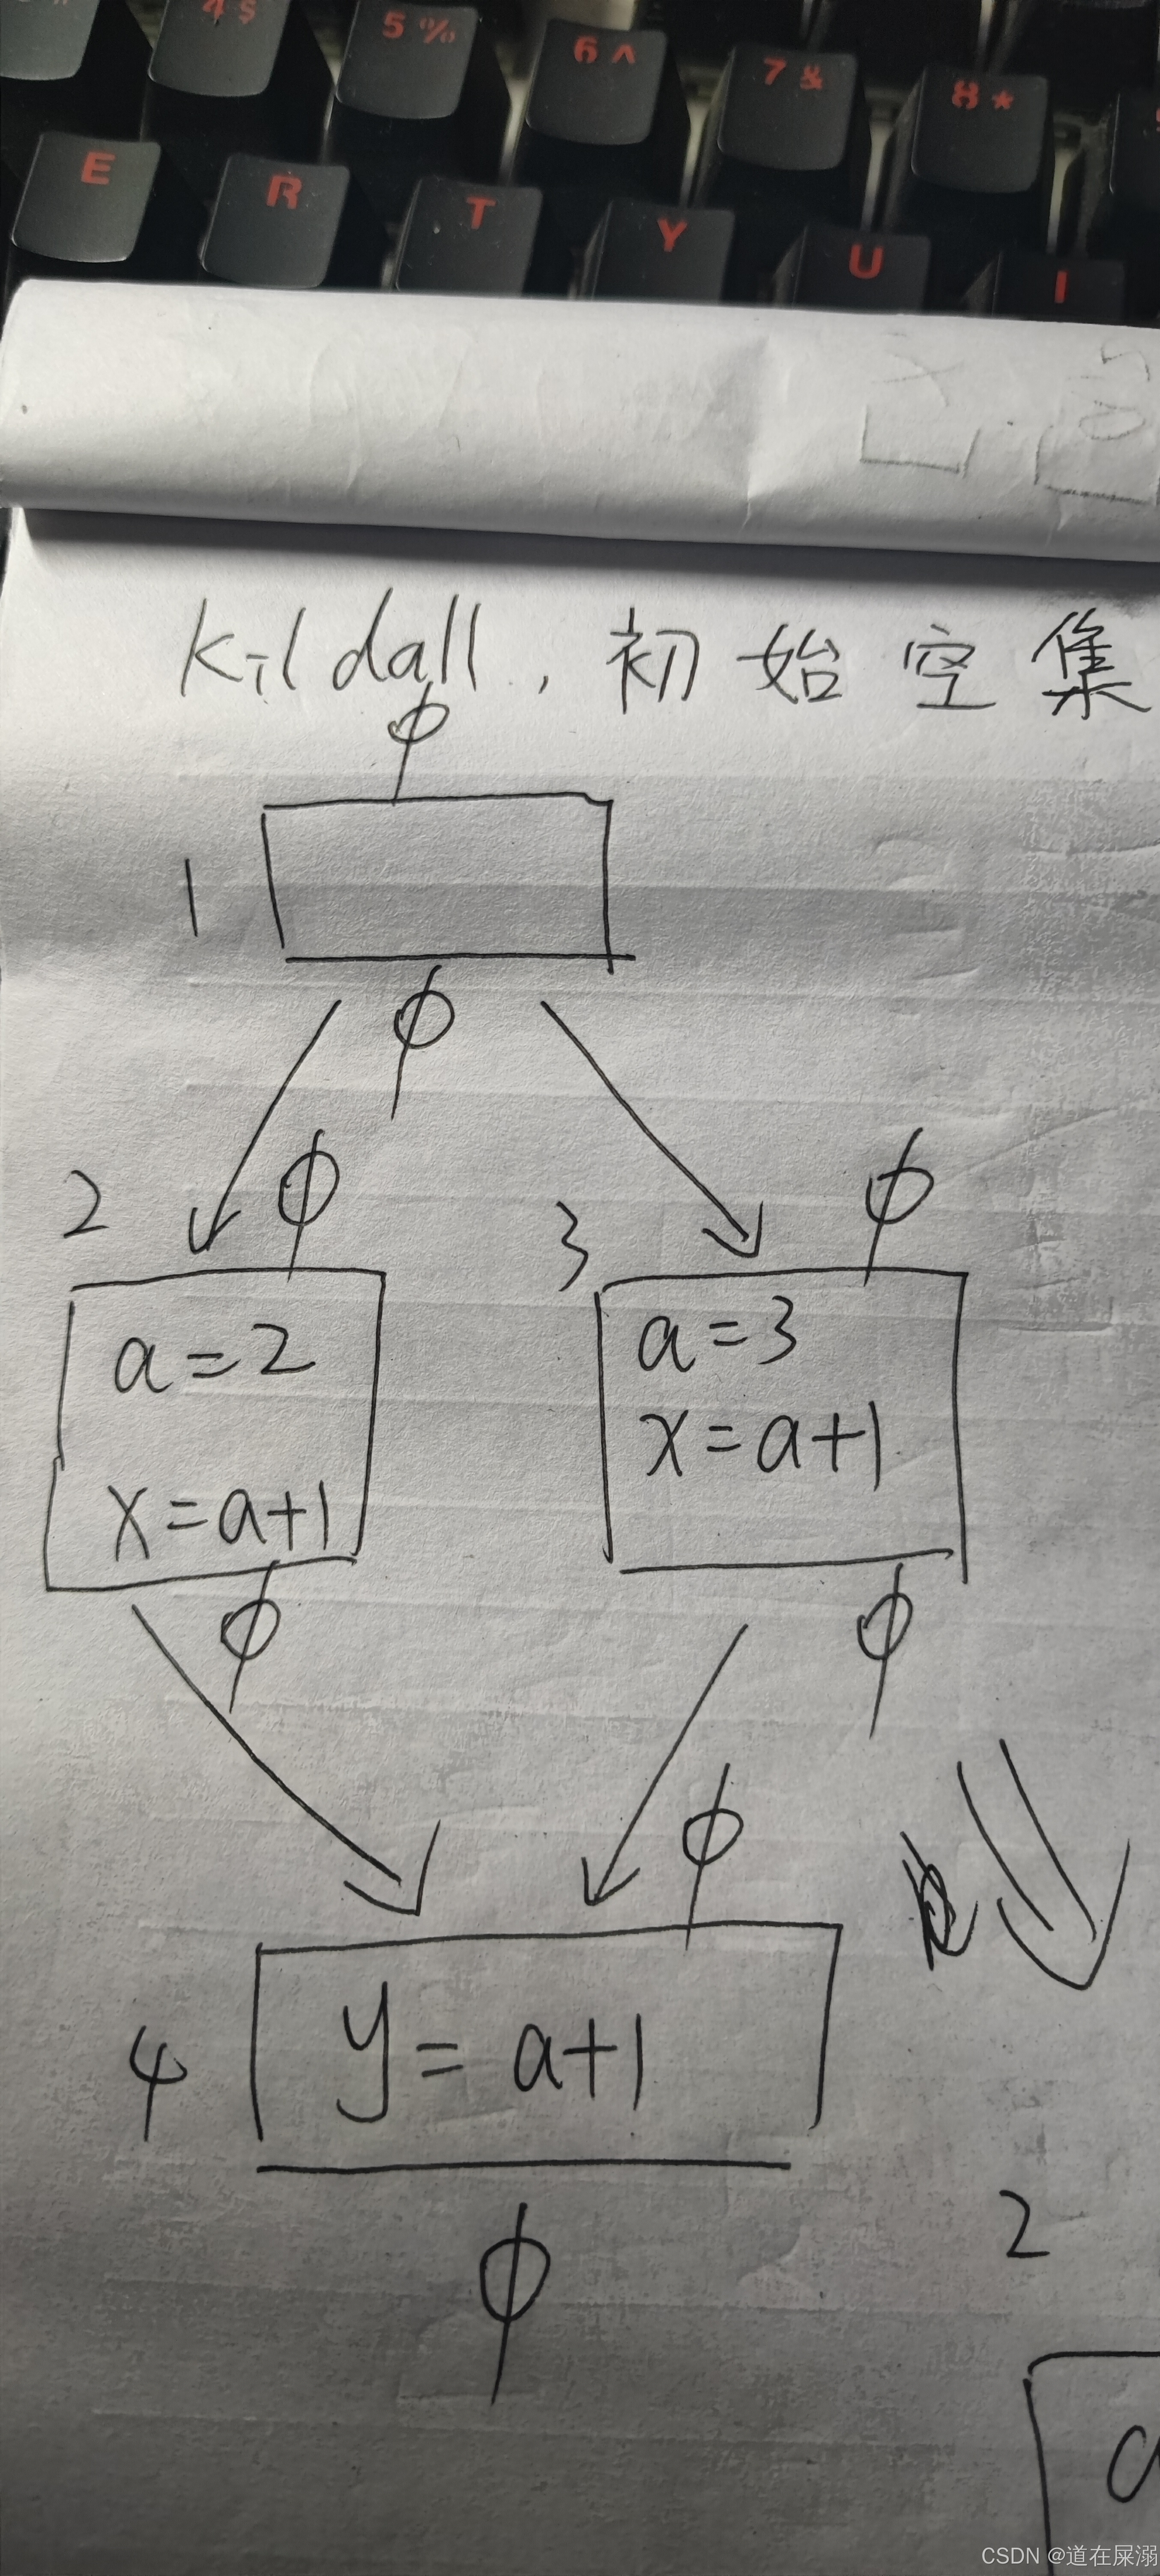 4 $
5 %
6 ^
7 &
8 *
E
R
T
Y
U
I
Kildall, 初始空集
φ
1
φ
2
φ
3
φ
a=2
a=3
x=a+1
x=a+1
φ
φ
φ
4
y=a+1
2
φ
a
CSDN @道在屎溺